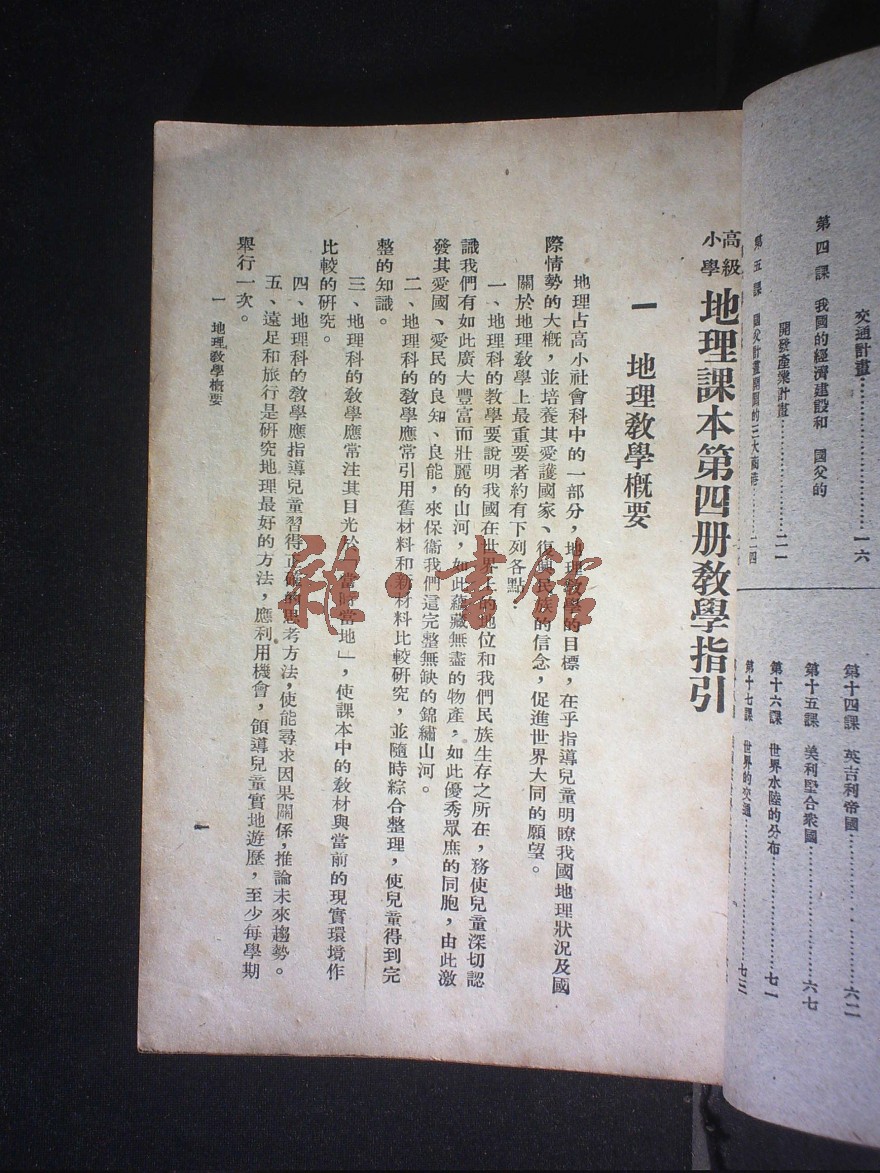 交通計畫……………………一六
第四課 我國的經濟建設和 國父的
開發產業計畫……………二一
第五課 國父計畫開闢的三大商港……二四
第十四課 英吉利帝國……………六二
第十五課 美利堅合衆國……………六七
第十六課 世界水陸的分布……………七一
第十七課 世界的交通……………七三
高級
小學
地理課本第四册教學指引
一 地理教學概要
地理占高小社會科中的一部分，地理教學的目標，在乎指導兒童明瞭我國地理狀况及國
際情勢的大概，並培養其愛護國家、復興民族的信念，促進世界大同的願望。
關於地理教學上最重要者約有下列各點：
一、地理科的教學要說明我國在世界上的地位和我們民族生存之所在，務使兒童深切認
識我們有如此廣大豐富而壯麗的山河，如此蘊藏無盡的物產，如此優秀眾庶的同胞，由此激
發其愛國、愛民的良知、良能，來保衞我們這完整無缺的錦繡山河。
二、地理科的教學應常引用舊材料和新材料比較研究，並隨時綜合整理，使兒童得到完
整的知識。
三、地理科的教學應常注其目光於「當時當地」，使課本中的教材與當前的現實環境作
比較的研究。
四、地理科的教學應指導兒童習得正確的思考方法，使能尋求因果關係，推論未來趨勢。
五、遠足和旅行是研究地理最好的方法，應利用機會，領導兒童實地遊歷，至少每學期
舉行一次。
一 地理教學概要
一
雜·書館